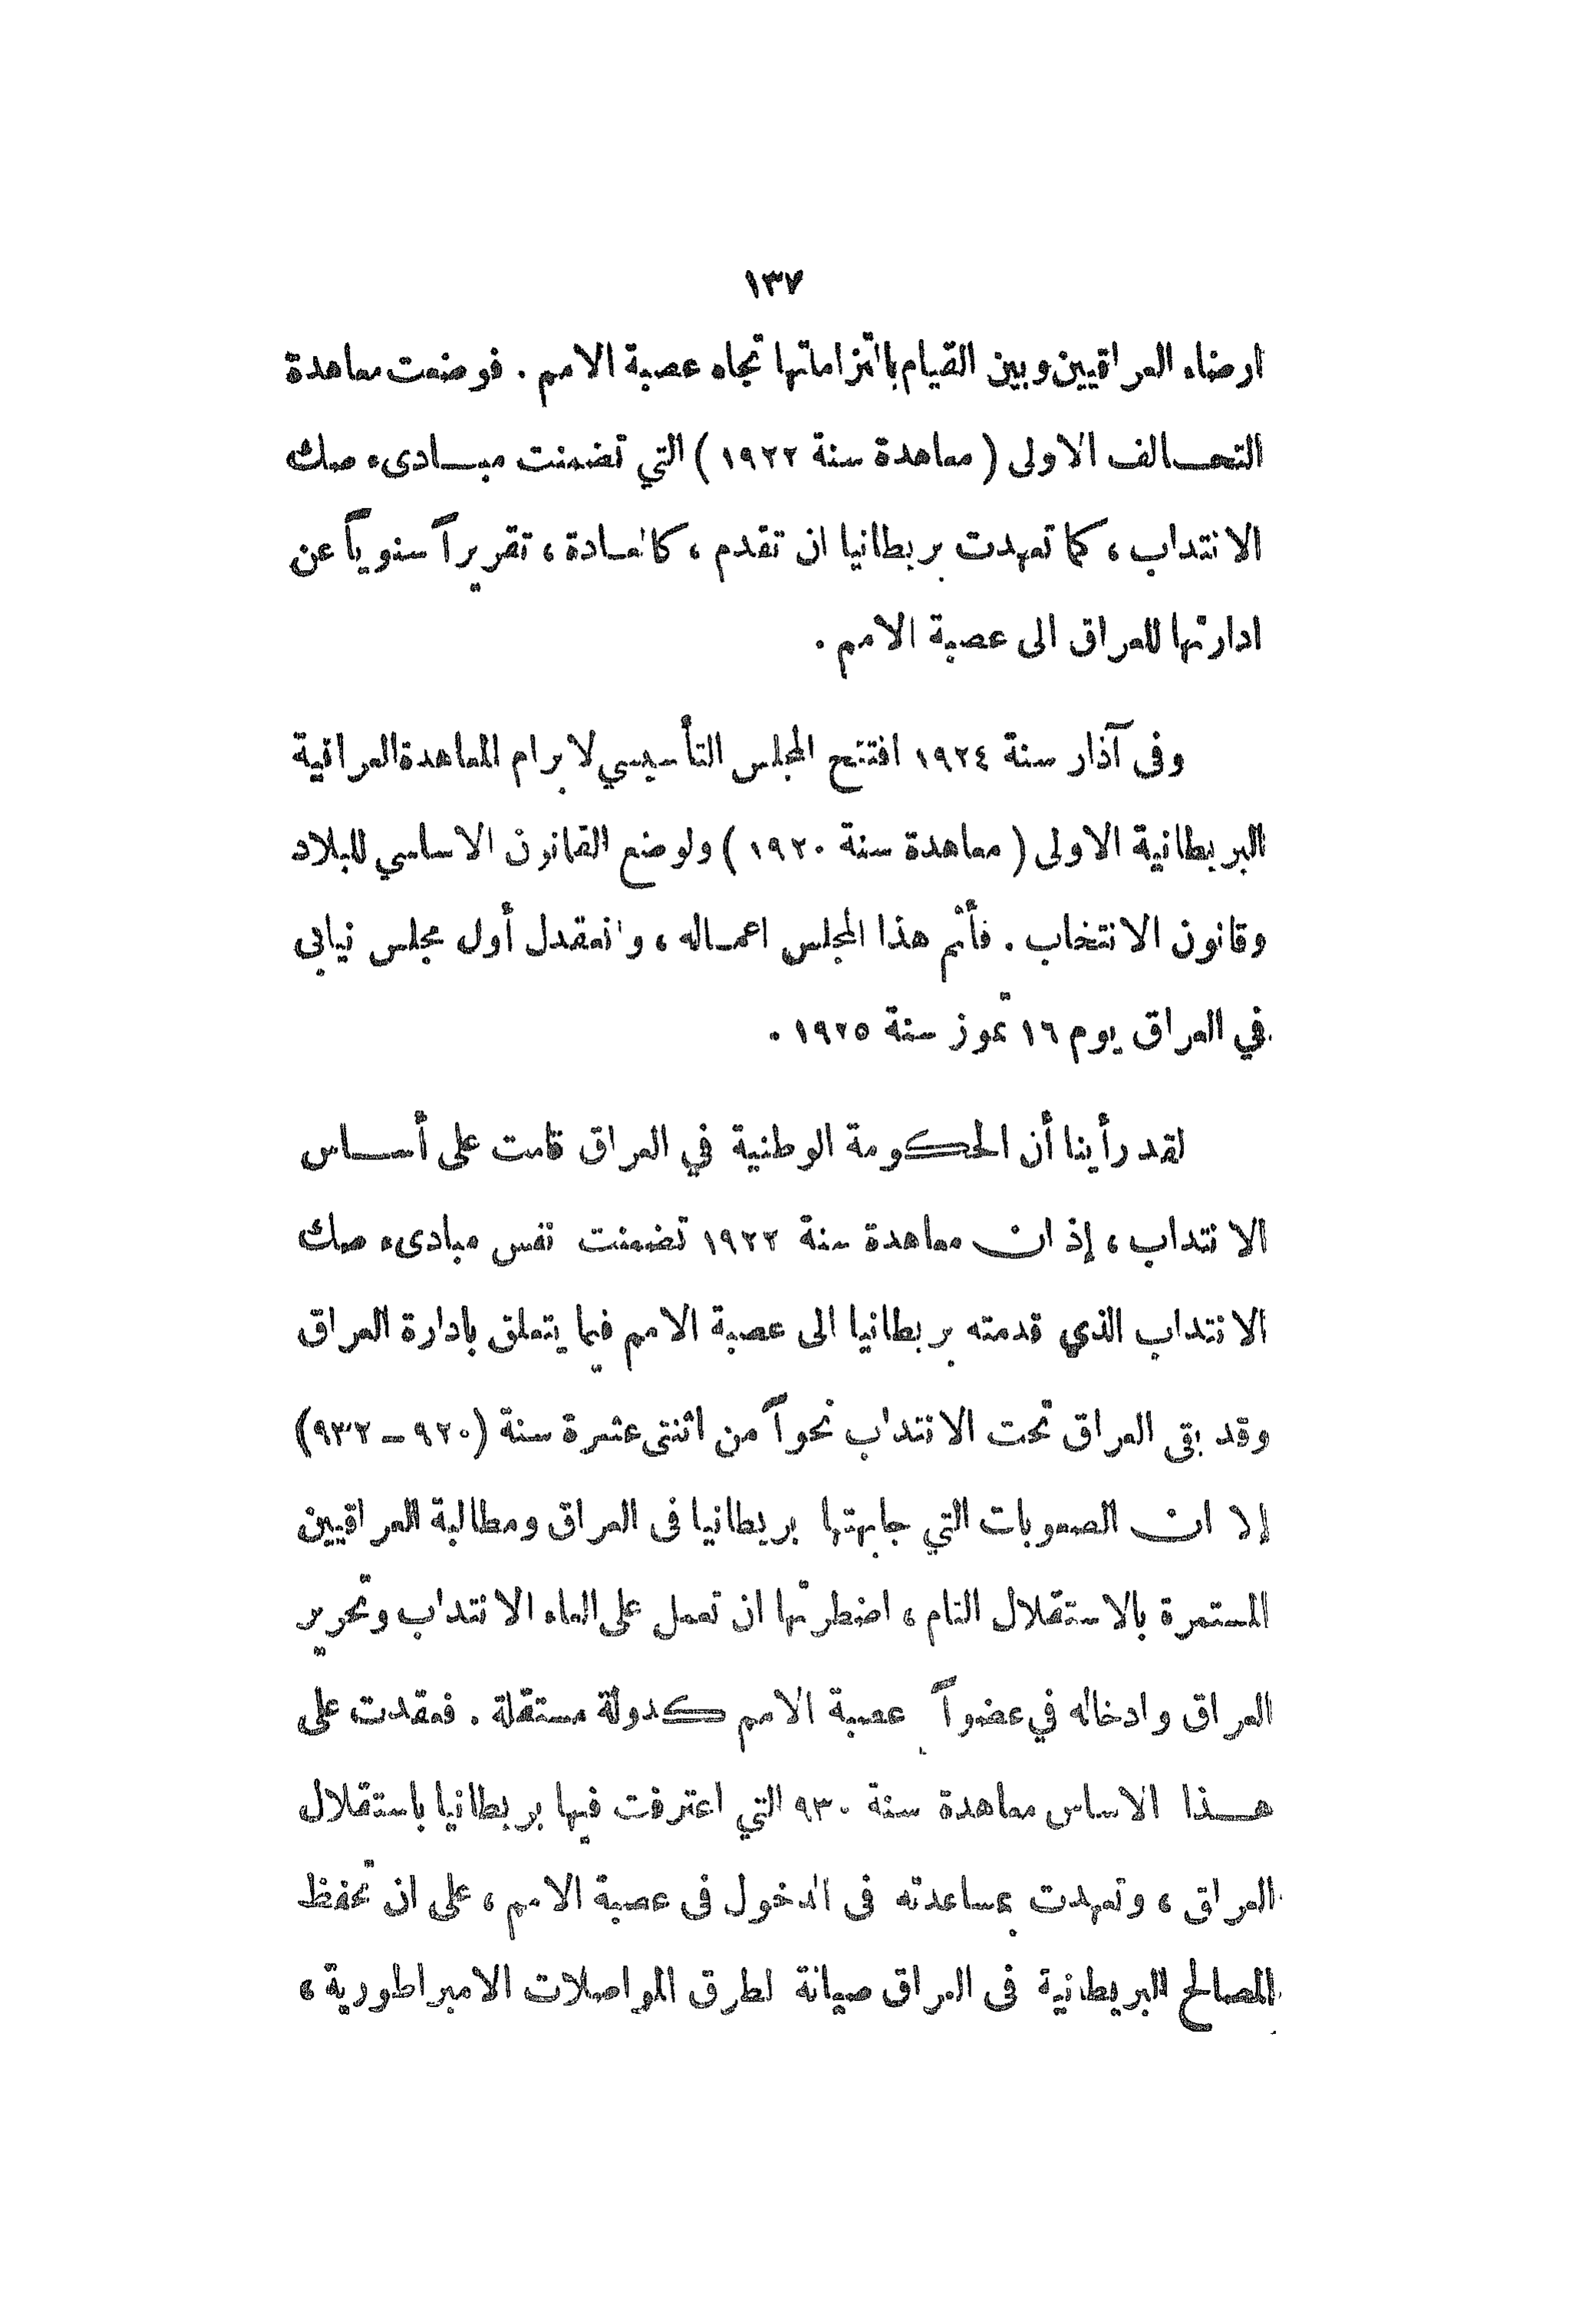 ١٣٧
ارضاء العراقيين وبين القيام بالتزاماتها تجاه عصبة الامم . فوضعت معاهدة
التحالف الاولى ( معاهدة سنة ١٩٢٢ ) التي تضمنت مبادىء صك
الانتداب ، كما تعهدت بريطانيا ان تقدم ، كالعادة ، تقريراً سنوياً عن
ادارتها للعراق الى عصبة الامم .
وفى آذار سنة ١٩٢٤ افتتح المجلس التأسيسي لابرام المعاهدة العراقية
البريطانية الاولى ( معاهدة سنة ١٩٢٠ ) ولوضع القانون الاساسي للبلاد
وقانون الانتخاب . فأتم هذا المجلس اعماله ، وانعقدل أول مجلس نيابى
في العراق يوم ١٦ تموز سنة ١٩٢٥ .
لقد رأينا أن الحكومة الوطنية في العراق قامت على أساس
الانتداب ، إذ ان معاهدة سنة ١٩٢٢ تضمنت نفس مبادىء صك
الانتداب الذي قدمته بريطانيا الى عصبة الامم فيما يتعلق بادارة العراق
وقد بقى العراق تحت الانتداب نحواً من اثنتى عشرة سنة (٩٢٠ــ٩٣٢)
إلا ان الصعوبات التي جابهتها بريطانيا فى العراق ومطالبة العراقيين
المستمرة بالاستقلال التام ، اضطرتها ان تعمل على الغاء الانتداب وتحرير
العراق وادخاله في عضواً عصبة الامم كدولة مستقلة . فعقدت على
هذا الاساس معاهدة سنة ٩٣٠ التي اعترفت فيها بريطانيا باستقلال
العراق ، وتعهدت بمساعدته فى الدخول فى عصبة الامم ، على ان تحفظ
المصالح البريطانية فى العراق صيانة لطرق المواصلات الامبراطورية ،